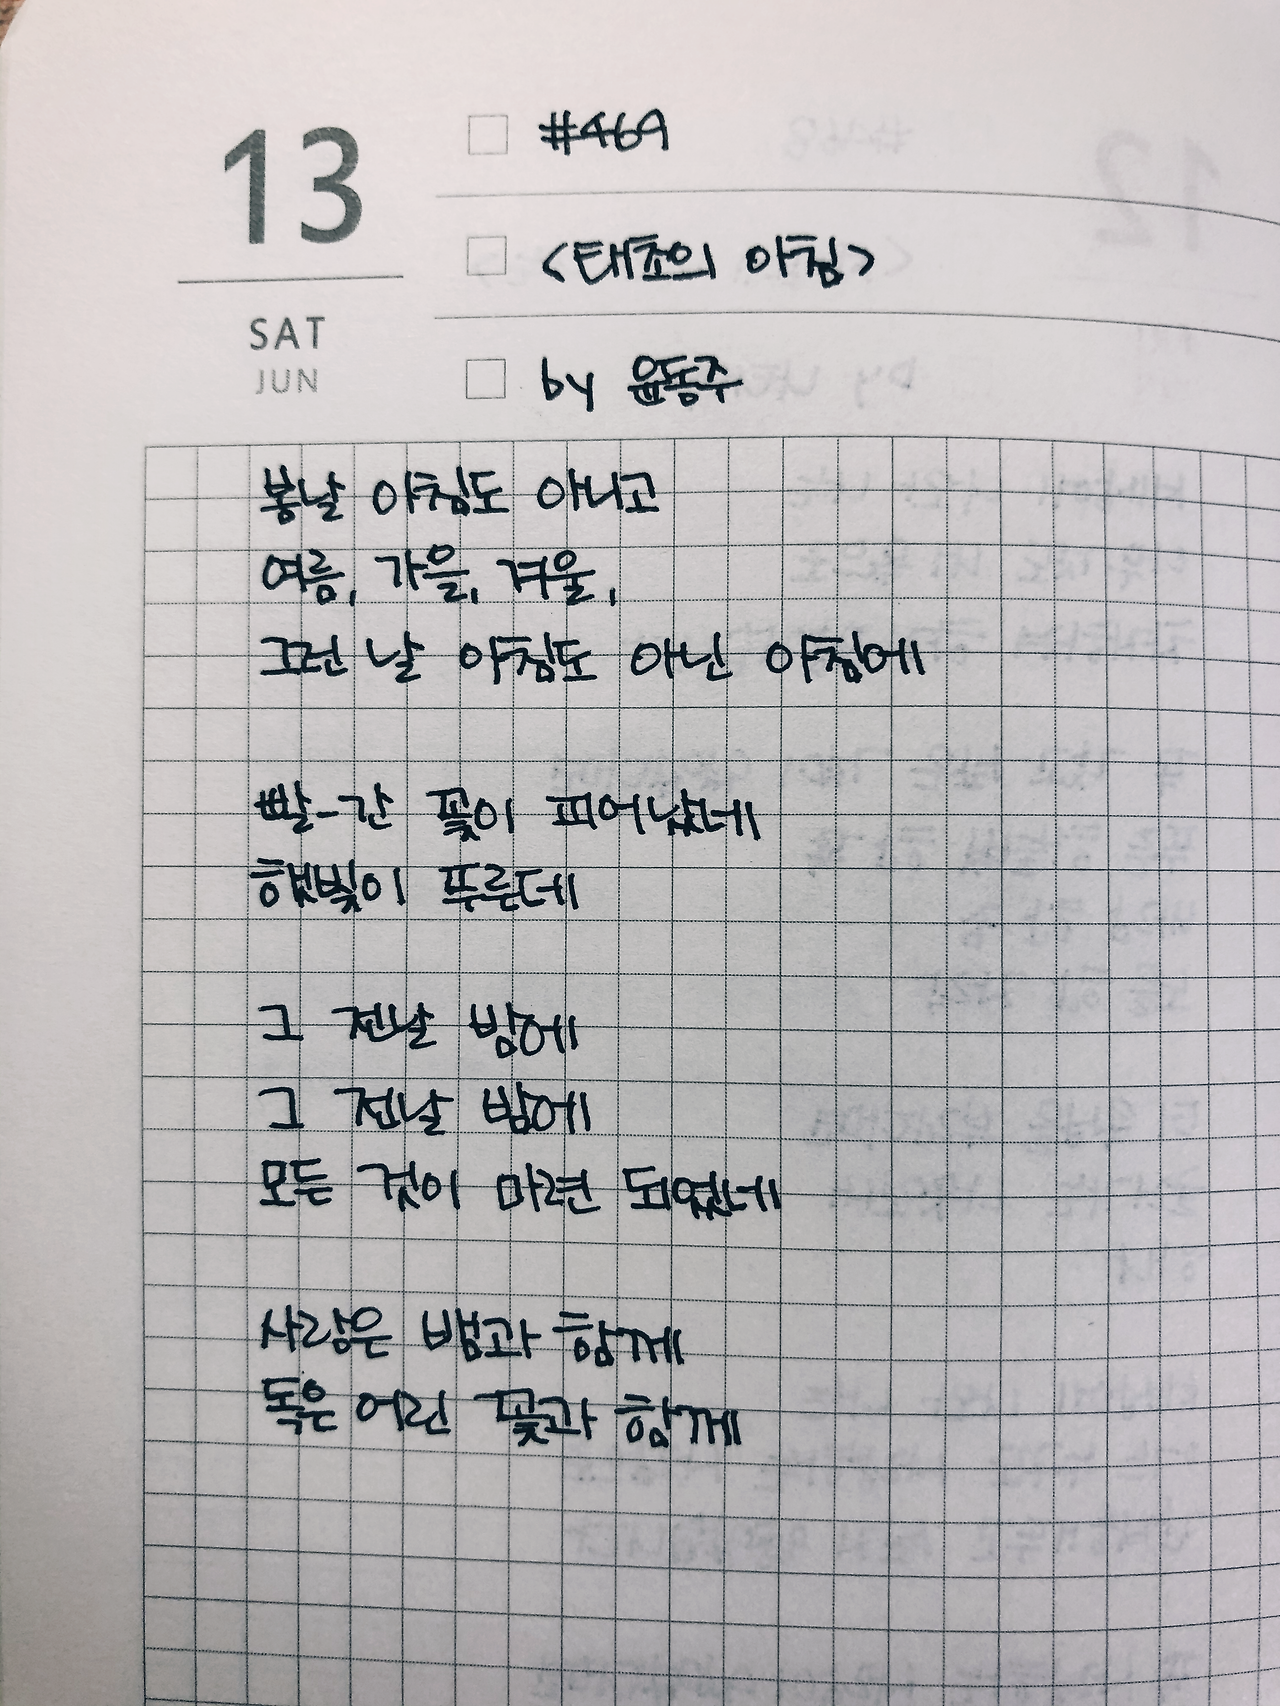 13
SAT
JUN
#469
<태초의 아침>
by 윤동주
봄날 아침도 아니고
여름, 가을, 겨울,
그런 날 아침도 아닌 아침에
빨-간 꽃이 피어났네
햇빛이 푸른데
그 전날 밤에
그 전날 밤에
모든 것이 마련 되었네
사랑은 뱀과 함께
독은 어린 꽃과 함께